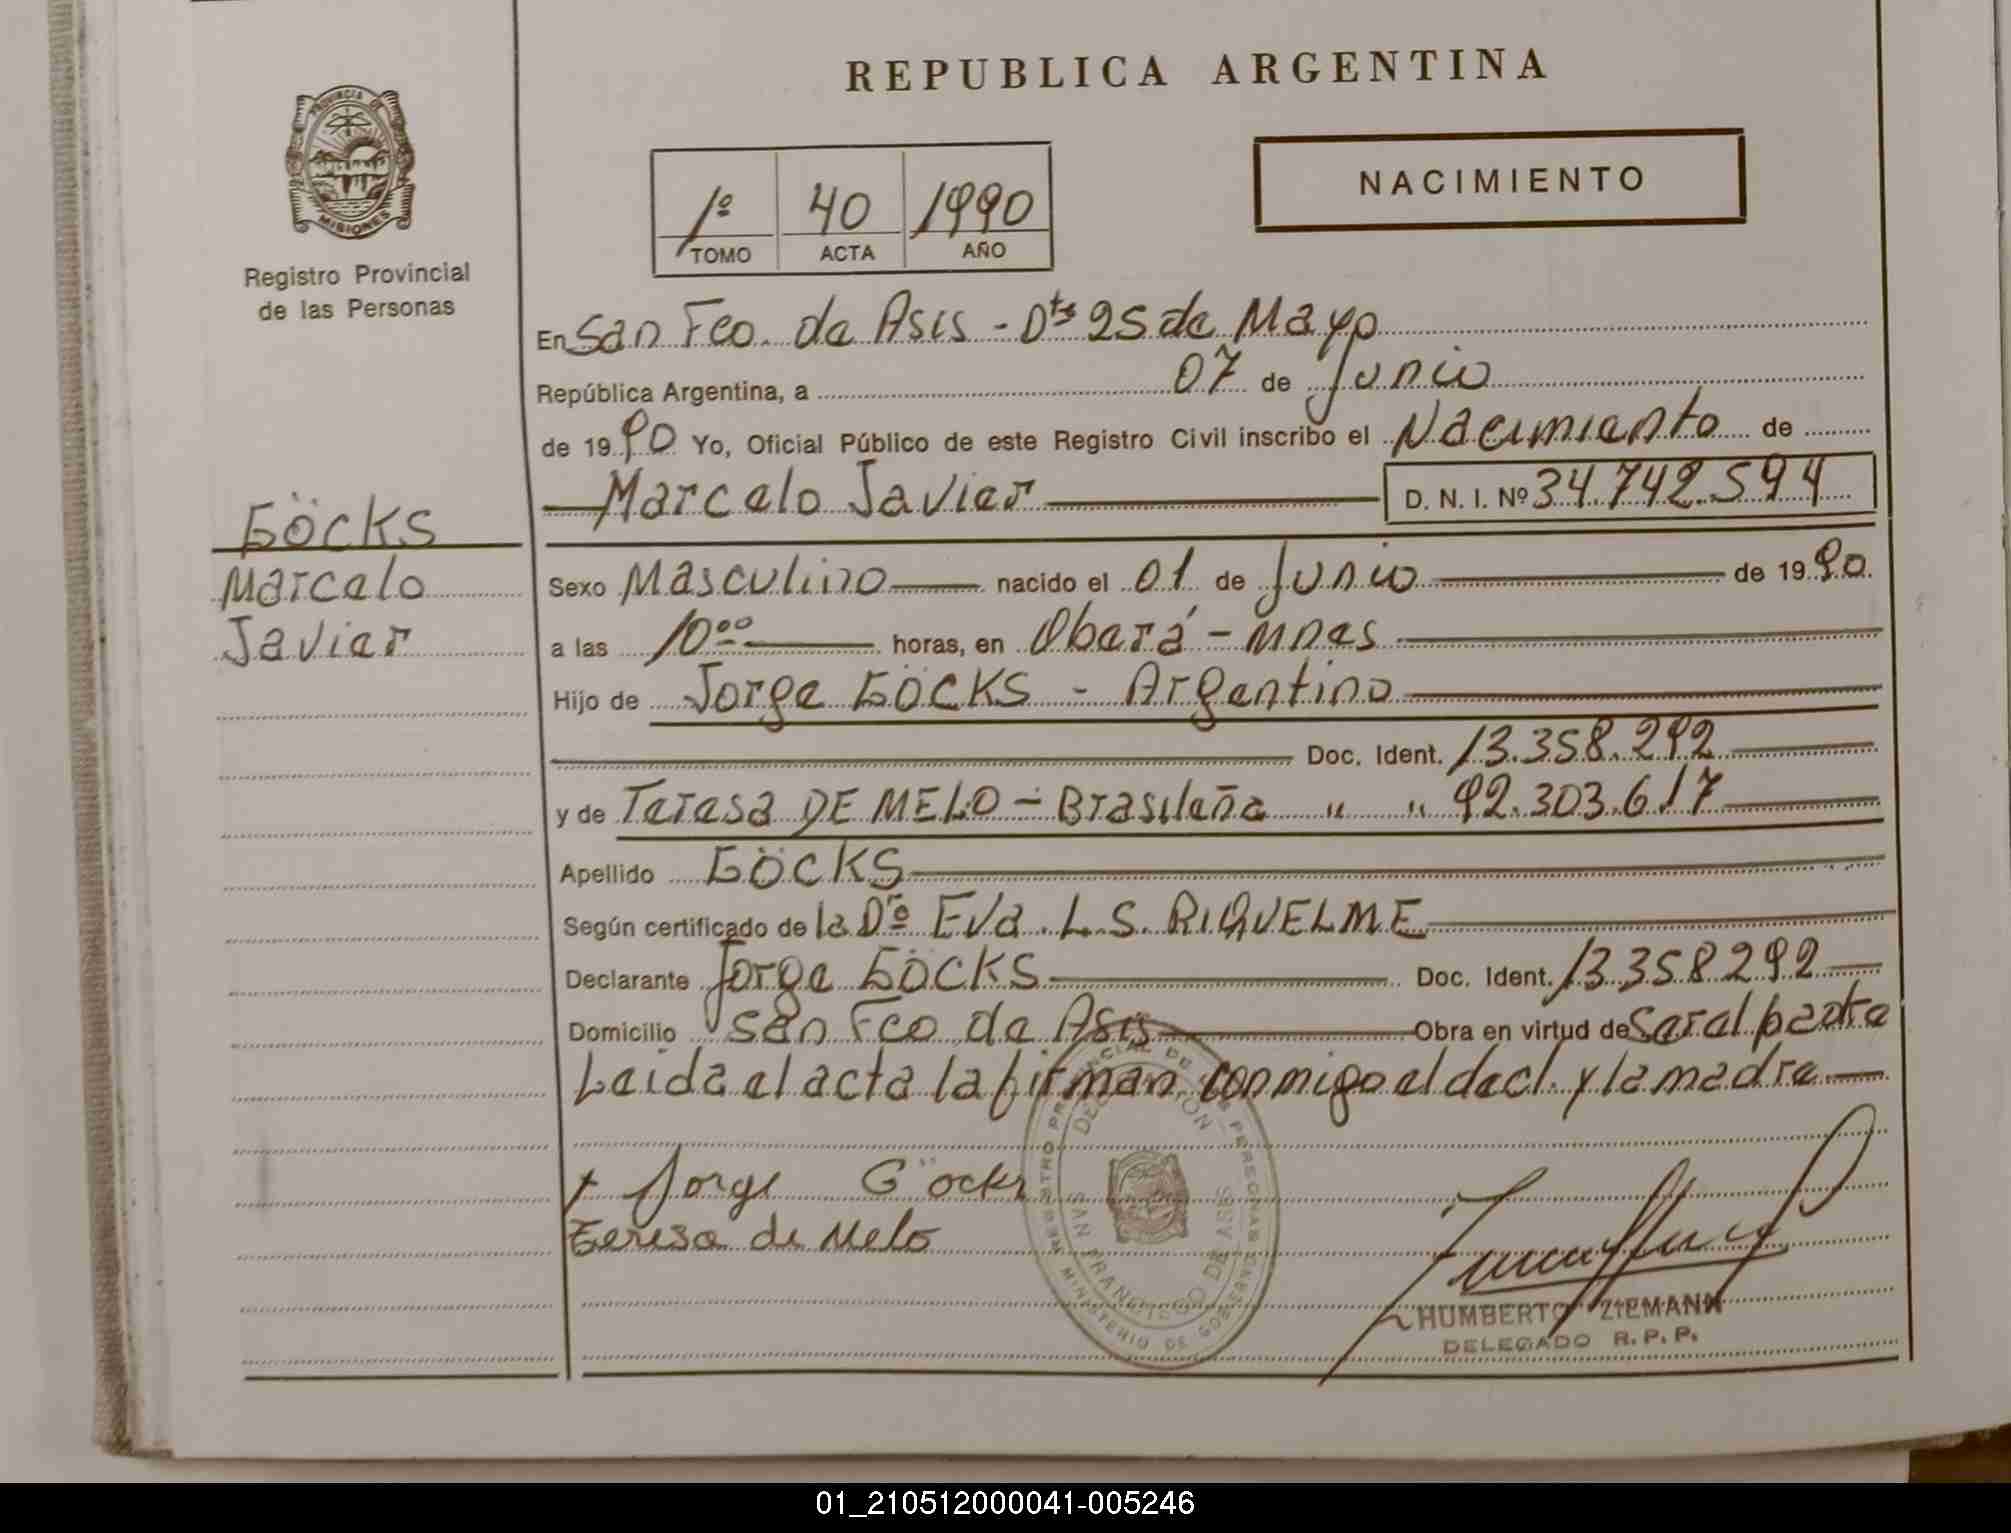 REPUBLICA ARGENTINA
PROVINCIA DE
MISIONES
Registro Provincial
de las Personas
NACIMIENTO
1º 40 1990
TOMO ACTA AÑO
En San Fco. de Asis - Dto 25 de Mayo
República Argentina, a 07 de Junio
de 1990 Yo, Oficial Público de este Registro Civil inscribo el Nacimiento de
Marcelo Javier D. N. I. Nº 34.742.594
GÖCKS
Marcelo
Javier
Sexo Masculino nacido el 01 de Junio de 1990
a las 10⁰⁰ horas, en Oberá - Mnes
Hijo de Jorge GÖCKS - Argentino
Doc. Ident. 13.358.292
y de Teresa DE MELO - Brasileña " " 92.303.617
Apellido GÖCKS
Según certificado de la Drª Eva. L. S. RIQUELME
Declarante Jorge GÖCKS Doc. Ident. 13.358292
Domicilio San Fco de Asis Obra en virtud de
Leida el acta la firman conmigo el decl. y la madre
Jorge Göcks
Teresa de Melo
REGISTRO PROVINCIAL DE LAS PERSONAS
DELEGACION
SAN FRANCISCO DE ASIS
MINISTERIO DE GOBIERNO
HUMBERTO ZIEMANN
DELEGADO R. P. P.
01_210512000041-005246